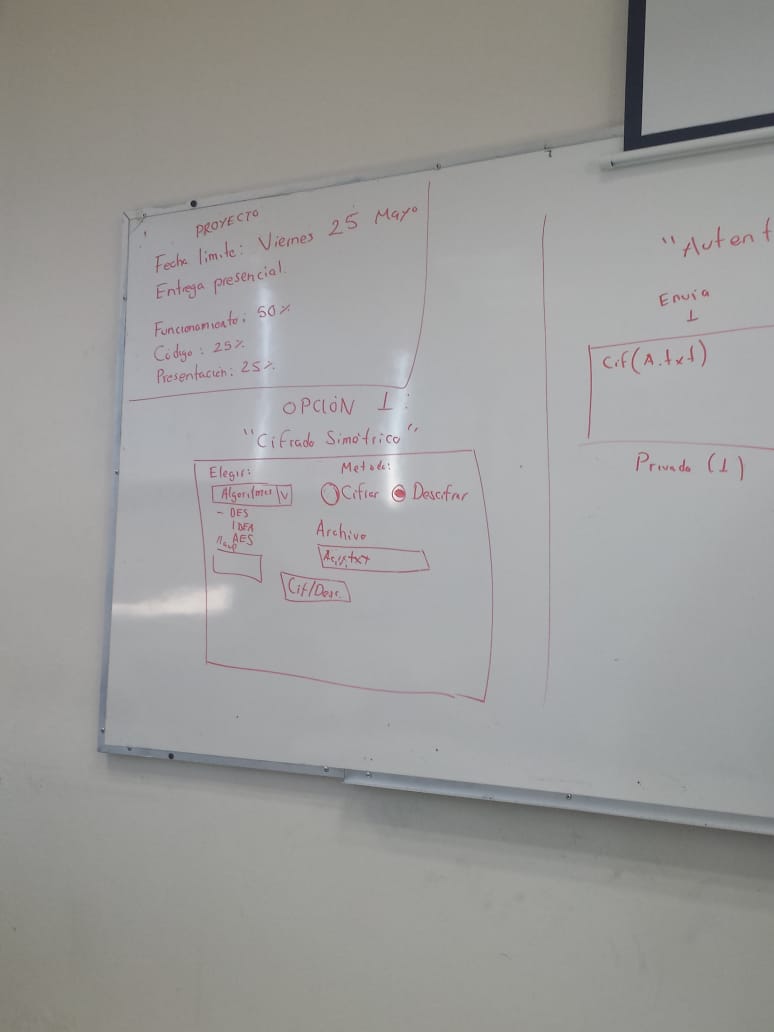 PROYECTO
Fecha limite: Viernes 25 Mayo
Entrega presencial.
Funcionamiento: 50%
Código: 25%
Presentación: 25%
OPCIÓN 1:
"Cifrado Simétrico"
Elegir:
Algoritmos V
- DES
IDEA
AES
Metodo:
Cifrar Descifrar
Archivo
Cif/Desc.
"Autent
Envia
1
Cif(A.txt)
Privado (1)